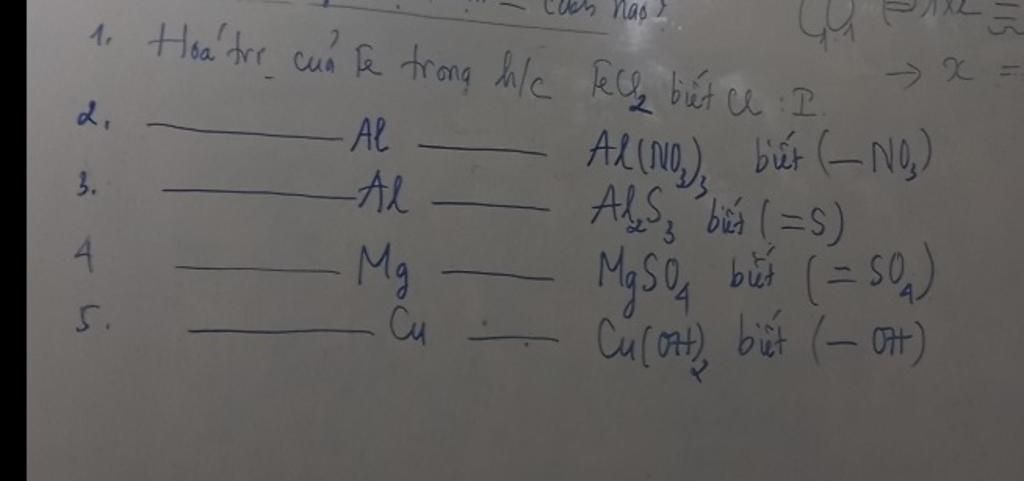 cách nào?
1. Hoá trị của Fe trong h/c FeCl₂ biết Cl : I.
2. ——— Al ——— Al(NO₃)₃ biết (— NO₃)
3. ——— Al ——— Al₂S₃ biết (= S)
4 ——— Mg ——— MgSO₄ biết (= SO₄)
5. ——— Cu ——— Cu(OH)₂ biết (— OH)
→ x =